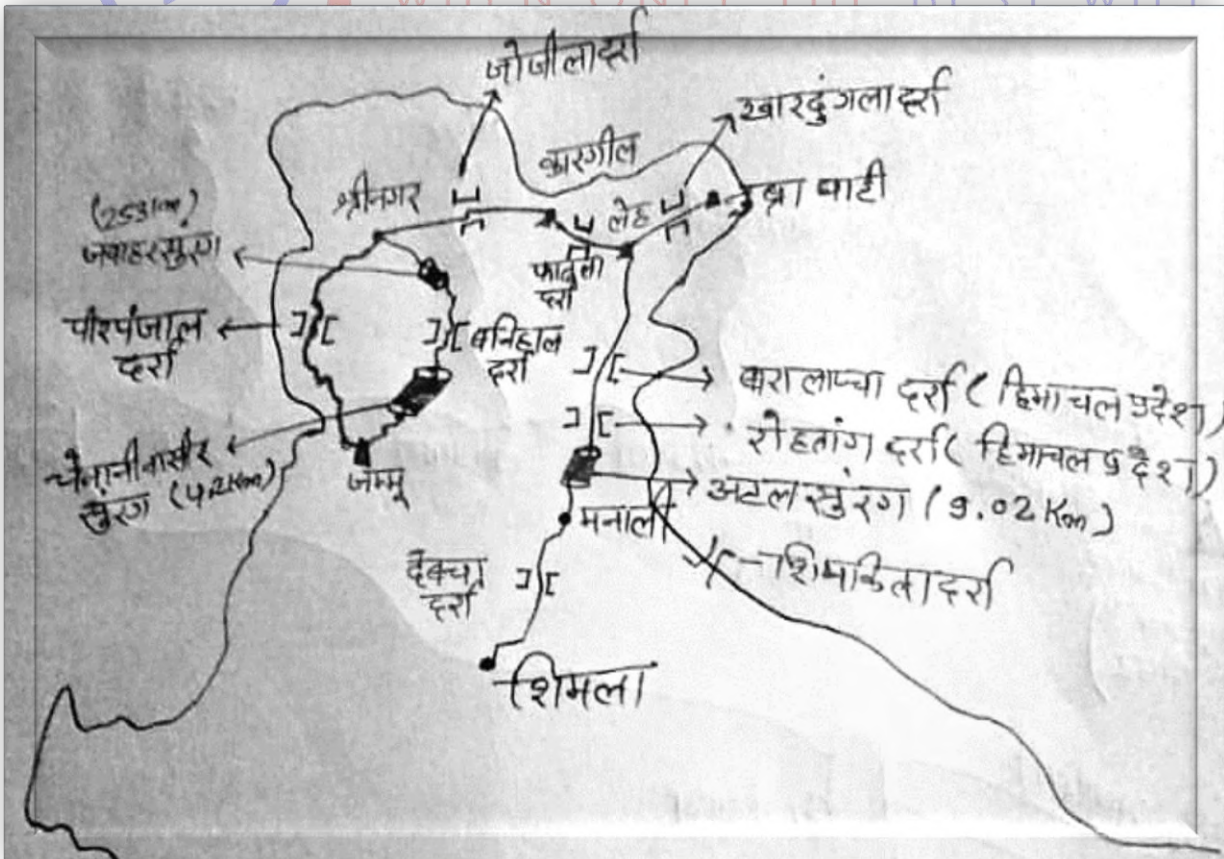 जोजीला दर्रा
खारदुंगला दर्रा
कारगील
श्रीनगर
लेह
ब्रा घाटी
(2531m)
जवाहर सुरंग
फातुला
दर्रा
पीरपंजाल
दर्रा
बनिहाल
दर्रा
बारालाप्चा दर्रा (हिमाचल प्रदेश)
रोहतांग दर्रा (हिमाचल प्रदेश)
चेनानी नासीर
सुंरग (4.2Km)
जम्मू
अटल सुंरग (9.02 Km)
मनाली
देबचा
दर्रा
शिपकिला दर्रा
शिमला